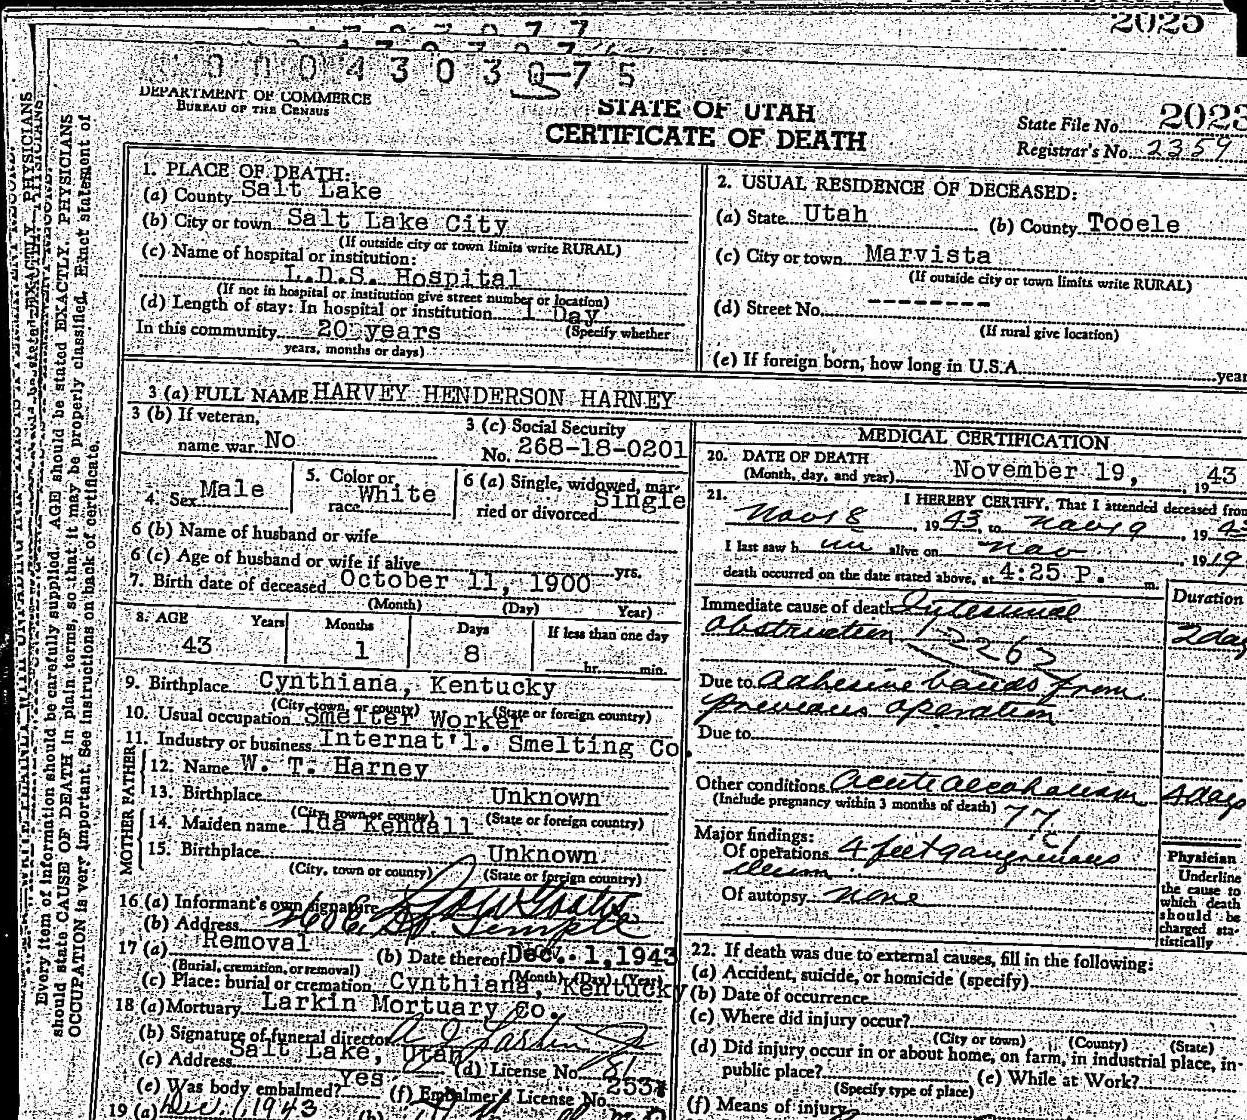 2025
0 0 0 4 3 0 3 0-7 5
DEPARTMENT OF COMMERCE
BUREAU OF THE CENSUS
STATE OF UTAH
CERTIFICATE OF DEATH
State File No. 2023
Registrar's No. 2359
Every item of information should be carefully supplied. AGE should be stated EXACTLY. PHYSICIANS
should state CAUSE OF DEATH in plain terms, so that it may be properly classified. Exact statement of
OCCUPATION is very important. See instructions on back of certificate.
1. PLACE OF DEATH:
(a) County Salt Lake
(b) City or town Salt Lake City
(If outside city or town limits write RURAL)
(c) Name of hospital or institution:
L.D.S. Hospital
(If not in hospital or institution give street number or location)
(d) Length of stay: In hospital or institution 1 Day
(Specify whether
In this community 20 years
years, months or days)
2. USUAL RESIDENCE OF DECEASED:
(a) State Utah (b) County Tooele
(c) City or town Marvista
(If outside city or town limits write RURAL)
(d) Street No. --------
(If rural give location)
(e) If foreign born, how long in U.S.A. year
3 (a) FULL NAME HARVEY HENDERSON HARNEY
3 (b) If veteran,
name war No
3 (c) Social Security
No. 268-18-0201
4. Sex Male
5. Color or
race White
6 (a) Single, widowed, mar-
ried or divorced Single
6 (b) Name of husband or wife
6 (c) Age of husband or wife if alive yrs.
7. Birth date of deceased October 11, 1900
(Month) (Day) Year)
8. AGE Years Months Days If less than one day
43 1 8 hr. min.
9. Birthplace Cynthiana, Kentucky
(City, town, or county) (State or foreign country)
10. Usual occupation Smelter Worker
11. Industry or business Internat'l. Smelting Co.
FATHER
12. Name W. T. Harney
13. Birthplace Unknown
(City, town or county) (State or foreign country)
MOTHER
14. Maiden name Ida Kendall
15. Birthplace Unknown
(City, town or county) (State or foreign country)
16 (a) Informant's own signature
(b) Address Temple
17 (a) Removal (b) Date thereof Dec. 1, 1943
(Burial, cremation, or removal) (Month) (Day) (Year)
(c) Place: burial or cremation Cynthiana, Kentucky
18 (a) Mortuary Larkin Mortuary Co.
(b) Signature of funeral director A J Larkin Jr
(c) Address Salt Lake, Utah (d) License No. 81
(e) Was body embalmed? Yes (f) Embalmer's License No. 253
19 (a) Dec. 1, 1943 (b)
MEDICAL CERTIFICATION
20. DATE OF DEATH
(Month, day, and year) November 19, 1943
21. I HEREBY CERTIFY, That I attended deceased from
Nov 18, 1943, to Nov 19, 1943
I last saw him alive on Nov 19
death occurred on the date stated above, at 4:25 P. m.
Duration
Immediate cause of death Intestinal
obstruction 2 day
Due to Adhesive bands from
previous operation
Due to
Other conditions Acute Alcoholism 4 days
(Include pregnancy within 3 months of death)
77
Major findings:
Of operations 4 feet gangrenous
ileum
Of autopsy none
Physician
Underline
the cause to
which death
should be
charged sta-
tistically
22. If death was due to external causes, fill in the following:
(a) Accident, suicide, or homicide (specify)
(b) Date of occurrence
(c) Where did injury occur?
(City or town) (County) (State)
(d) Did injury occur in or about home, on farm, in industrial place, in-
public place? (e) While at Work?
(Specify type of place)
(f) Means of injury